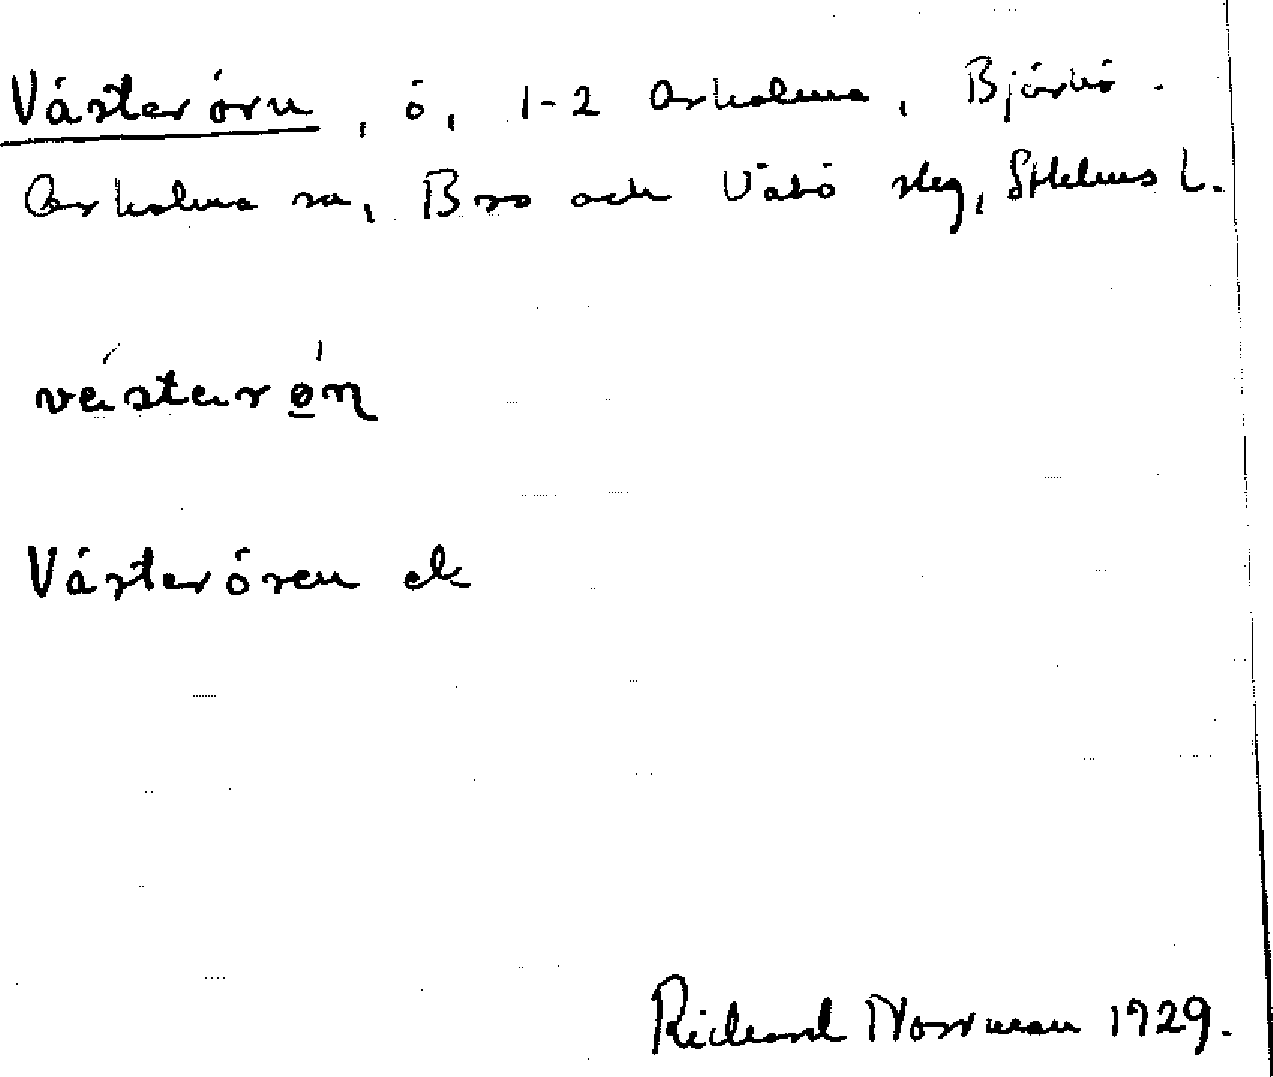 Västerörn, ö, 1-2 Arholma, Björkö-
Arholma sn, Bro och Vätö slg, Sthlms L.
västerøɳ
Västerören ek
Richard Norrman 1929.